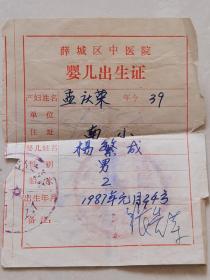 薛城区中医院
婴儿出生证
产妇姓名 孟秋荣 年令 39
单位
住址 南小
婴儿姓名 杨繁成
性别 男
胎次 2
出生年月 1987年元月24号
备注